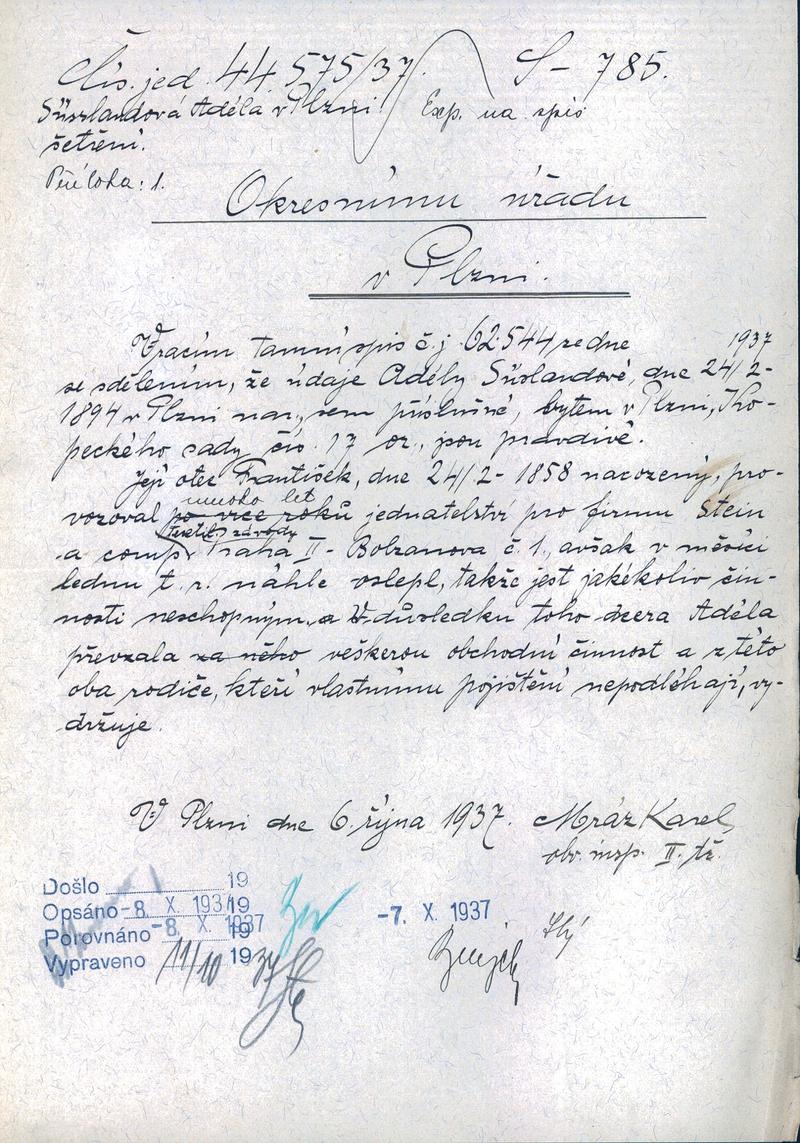 Čís. jed. 44.575/37. S- 785.
Süsslandová Adéla v Plzni Exp. na spis
šetření.
Příloha: 1.
Okresnímu úřadu
v Plzni.
Vracím tamní spis č.j. 62.544 ze dne 1937
se sdělením, že údaje Adély Süsslandové, dne 24/2-
1894 v Plzni nar., sem příslušné, bytem v Plzni, Ko-
peckého sady čís. 17 or., jsou pravdivé.
Její otec František, dne 24/2- 1858 narozený, pro-
mnoho let
vozoval po více roků jednatelství pro firmu Stein
(textil. závody)
a comp. Praha II- Bolzanova č. 1., avšak v měsíci
lednu t. r. náhle oslepl, takže jest jakékoliv čin-
nosti neschopným, a V důsledku toho dcera Adéla
převzala za něho veškerou obchodní činnost a z této
oba rodiče, kteří vlastnímu pojištění nepodléhají, vy-
držuje.
V Plzni dne 6. října 1937. Mráz Karel,
obv. insp. II. tř.
Došlo 19
Opsáno -8. X. 1937 19
Porovnáno -8. X. 1937 19
Vypraveno 11/10 1937
-7. X. 1937